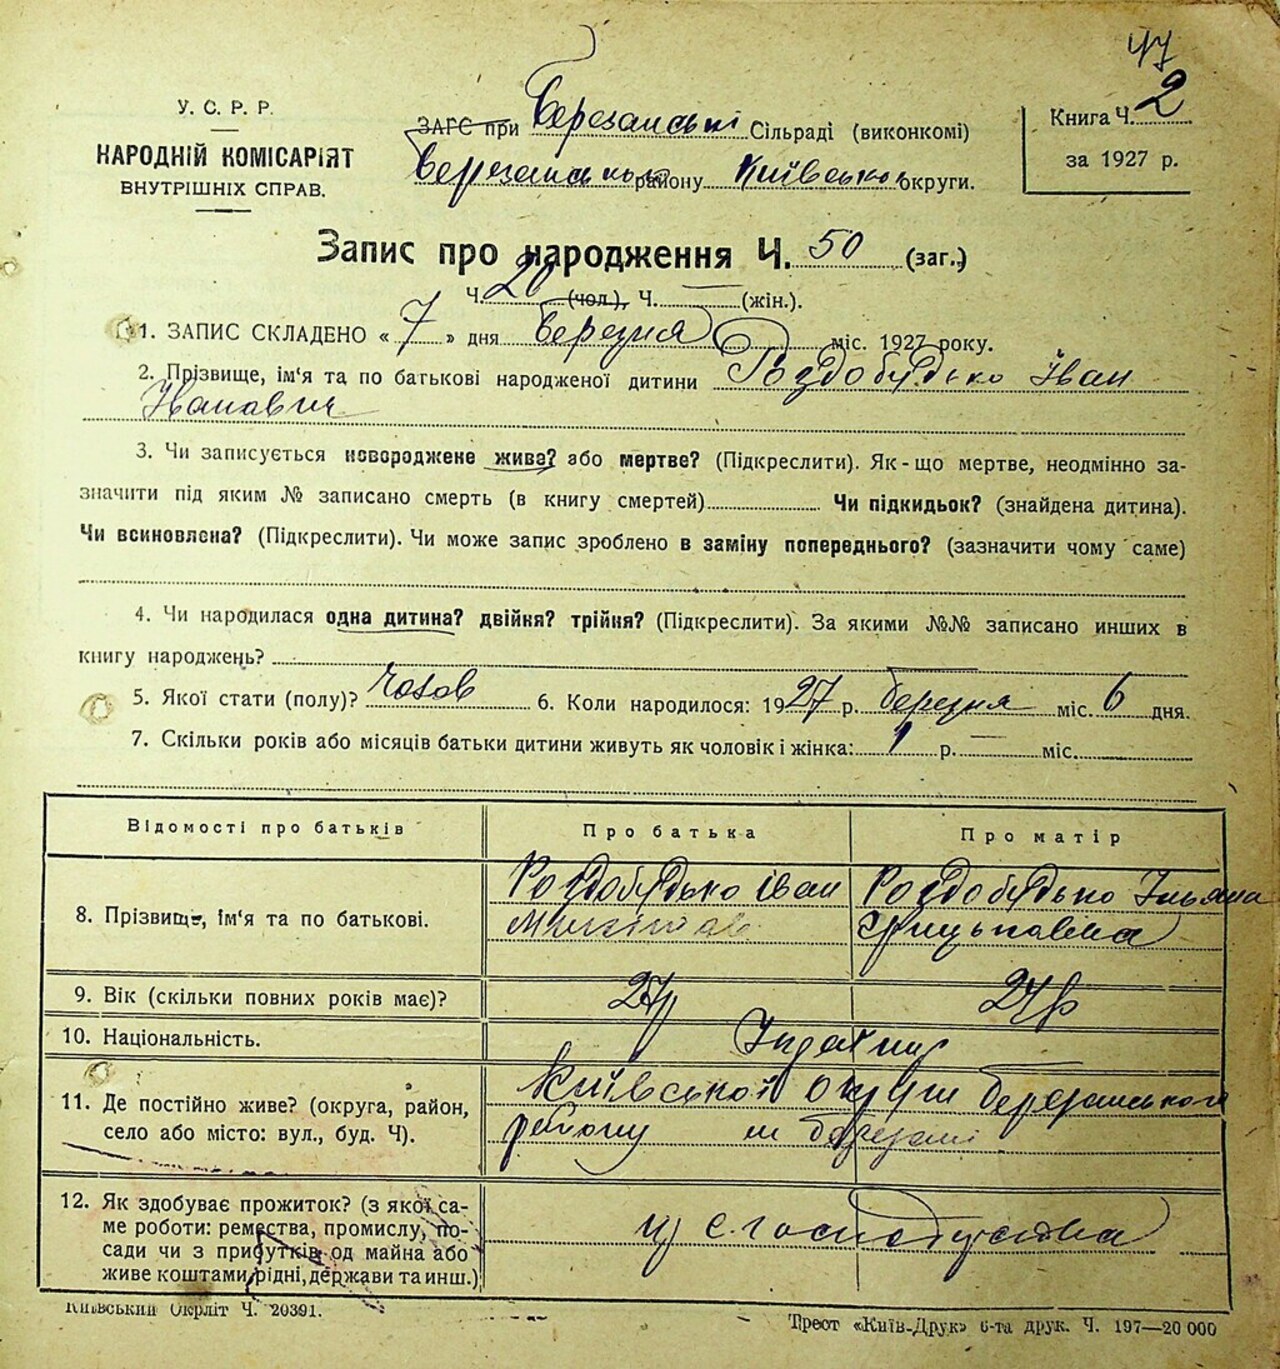 47
У. С. Р. Р.
НАРОДНІЙ КОМІСАРІЯТ
ВНУТРІШНІХ СПРАВ.
ЗАГС при Березанські Сільраді (виконкомі)
району Київської округи.
Книга Ч. 2
за 1927 р.
Запис про народження Ч. 50 (заг.)
Ч. (чол.), Ч. — (жін.).
1. ЗАПИС СКЛАДЕНО « 7 » дня березня міс. 1927 року.
2. Прізвище, ім'я та по батькові народженої дитини Роздобудько Іван
Іванович
3. Чи записується новороджене живе? або мертве? (Підкреслити). Як-що мертве, неодмінно за-
значити під яким № записано смерть (в книгу смертей) Чи підкидьок? (знайдена дитина).
Чи всиновлена? (Підкреслити). Чи може запис зроблено в заміну попереднього? (зазначити чому саме)
4. Чи народилася одна дитина? двійня? трійня? (Підкреслити). За якими №№ записано инших в
книгу народжень?
5. Якої стати (полу)? 6. Коли народилося: 1927 р. березня міс. 6 дня.
7. Скільки років або місяців батьки дитини живуть як чоловік і жінка: 1 р. — міс.
Відомості про батьків
Про батька
Про матір
8. Прізвище, ім'я та по батькові.
Роздобудько Іван
Роздобудько
9. Вік (скільки повних років має)?
24р
10. Національність.
11. Де постійно живе? (округа, район,
село або місто: вул., буд. Ч).
Київської округи Березанського
району м Березані
12. Як здобуває прожиток? (з якої са-
ме роботи: ремества, промислу, по-
сади чи з прибутків од майна або
живе коштами рідні, держави та инш.)
з с. господарства
Київський Окрліт Ч. 20391.
Трест «Київ-Друк» 6-та друк. Ч. 197—20 000